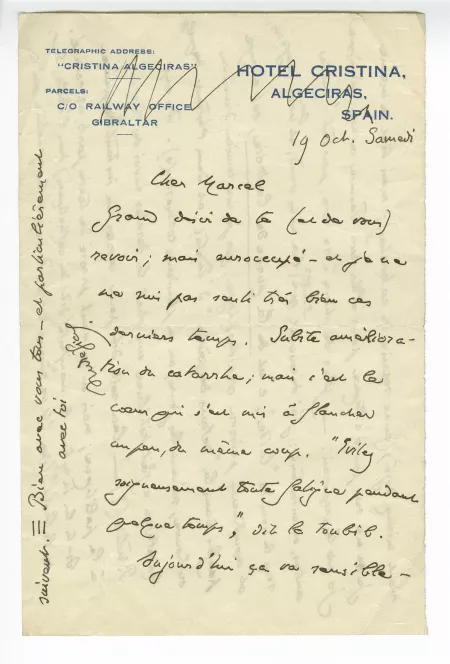 TELEGRAPHIC ADDRESS:
"CRISTINA ALGECIRAS"
PARCELS:
C/O RAILWAY OFFICE
GIBRALTAR
HOTEL CRISTINA,
ALGECIRAS,
SPAIN.
19 Oct. Samedi
Cher Marcel
Grand désir de te (et de vous)
revoir; mais suroccupé – et je ne
me suis pas senti très bien ces
derniers temps. Subite améliora-
tion du catarrhe; mais c'est le
cœur qui s'est mis à flancher
un peu, du même coup. "Evitez
soigneusement toute fatigue pendant
quelque temps", dit le toubib.
Aujourd'hui ça va sensible-
suivant. Bien avec vous tous – et particulièrement
avec toi